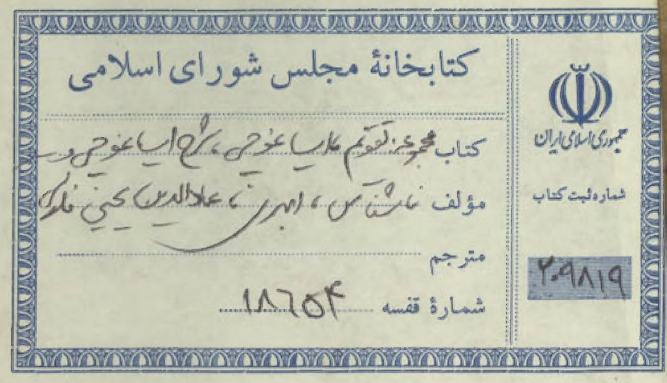 کتابخانهٔ مجلس شورای اسلامی
کتاب مجموعه: تقویم ایساغوجی، شرح ایساغوجی و
مؤلف ناشناس، ابهری، عمادالدین یحیی
مترجم
شمارهٔ قفسه ۱۸۶۵۴
جمهوری اسلامی ایران
شماره ثبت کتاب
۲۰۹۸۱۹